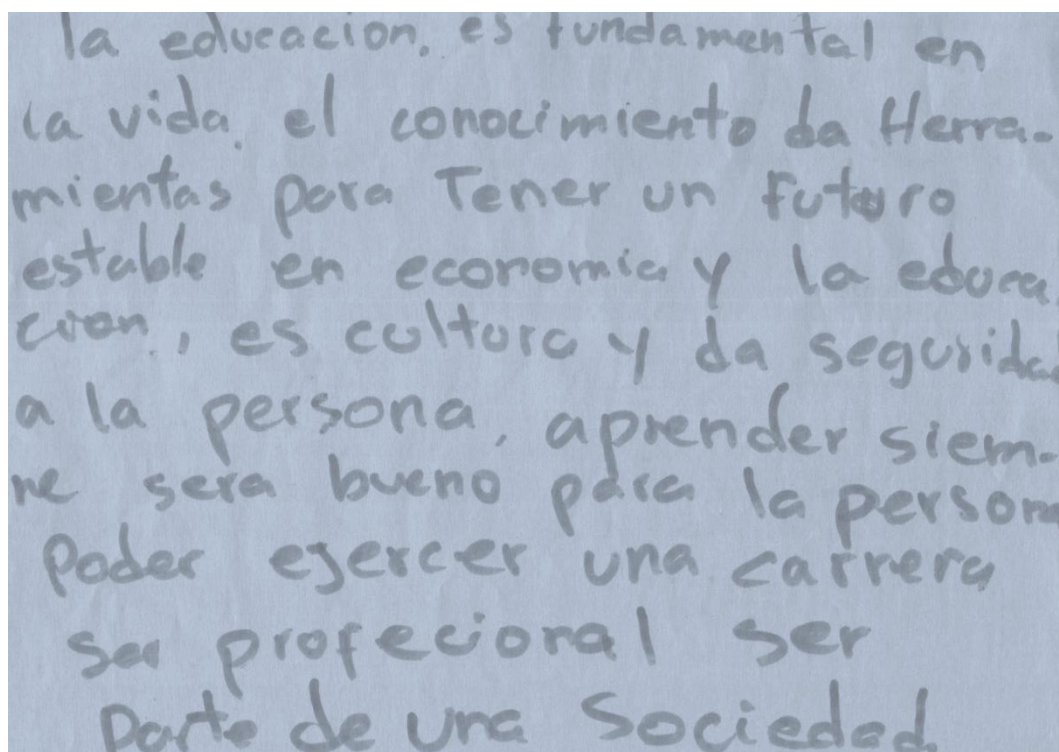 la educacion, es fundamental en
la vida. el conocimiento da Herra-
mientas para Tener un Futuro
estable en economia y la educa
cion, es cultura y da seguridad
a la persona, aprender siem-
pre sera bueno para la persona
Poder ejercer una carrera
ser profecional ser
Parte de una Sociedad